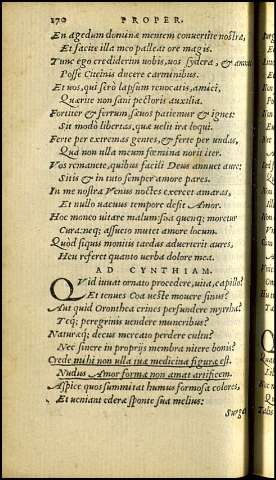 170 PROPER.
En agedum dominæ mentem conuertite nostræ,
Et facite illa meo palleat ore magis.
Tunc ego crediderim uobis, uos sydera, & amnes
Posse Citeinis ducere carminibus.
Et uos, qui serò lapsum reuocatis, amici,
Quærite non sani pectoris auxilia.
Fortiter & ferrum, sæuos patiemur & ignes:
Sit modò libertas, quæ uelit ira loqui.
Ferte per extremas gentes, & ferte per undas,
Qua non ulla meum fœmina norit iter.
Vos remanete, quibus facili Deus annuet aure:
Sitis & in tuto semper amore pares.
In me nostra Venus noctes exercet amaras,
Et nullo uacuus tempore desit Amor.
Hoc moneo uitare malum: sua quenq; moretur
Cura: neq; assueto mutet amore locum.
Quòd siquis monitis tardas aduerterit aures,
Heu referet quanto uerba dolore mea.
AD CYNTHIAM.
Quid iuuat ornato procedere, uita, capillo?
Et tenues Coa ueste mouere sinus?
Aut quid Oronthea crines perfundere myrrha?
Teq; peregrinis uendere muneribus?
Naturæq; decus mercato perdere cultu?
Nec sinere in proprijs membra nitere bonis?
Crede mihi non ulla tuæ medicina figuræ est.
Nudus Amor formæ non amat artificem.
Aspice quos summitat humus formosa colores,
Et ueniant ederæ sponte sua melius:
Surgat